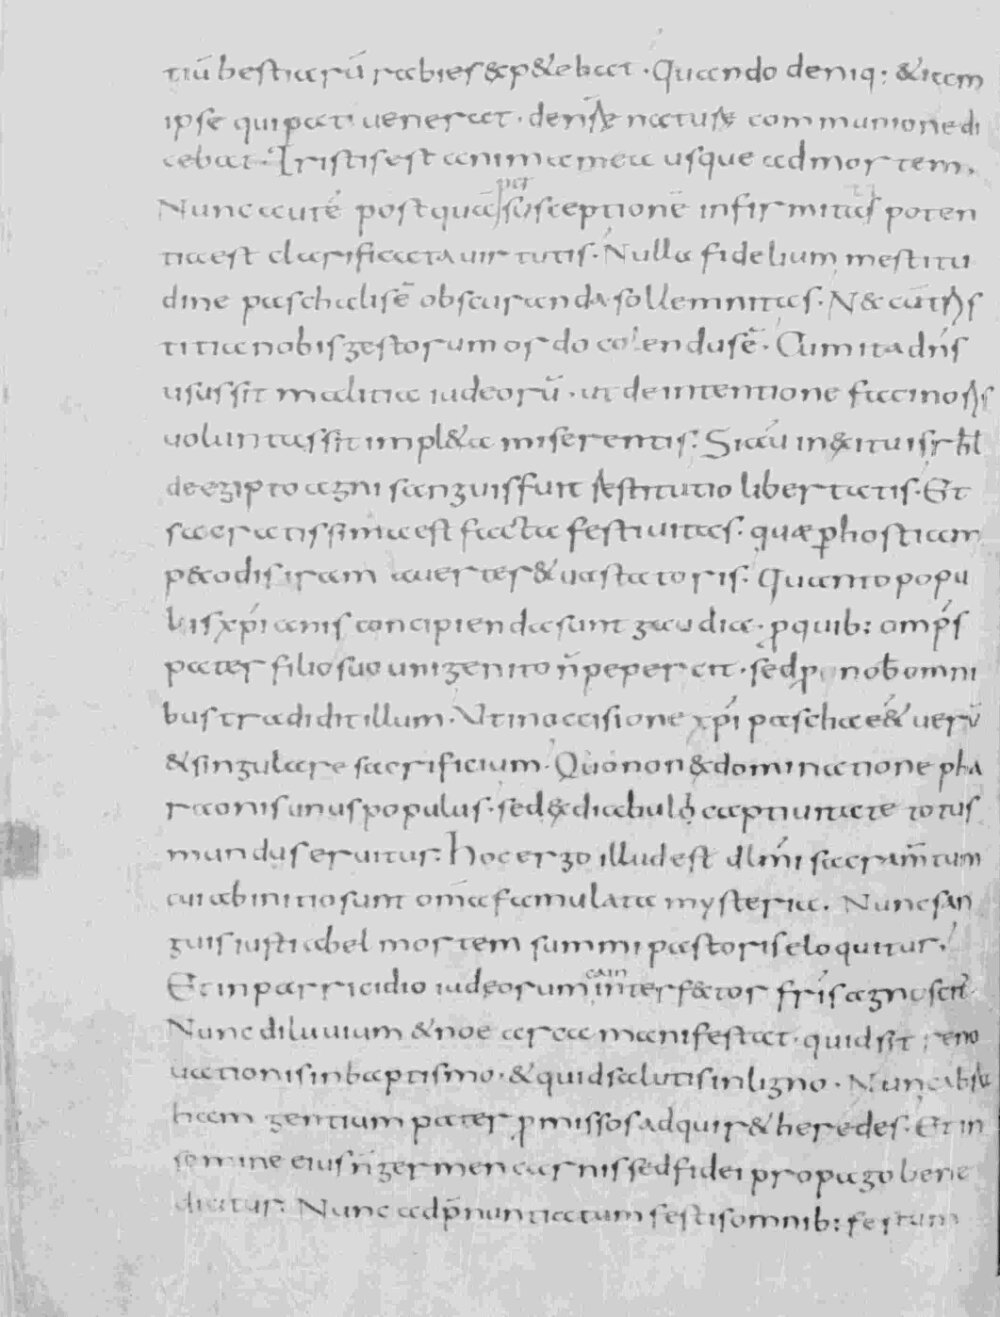 tiū bestiarū rabies exp&ebat · Quando deniq: &iam
ipse qui pati uenerat · de nr̄ae naturae communione di
cebat · Tristis est anima mea usque ad mortem.
Nunc autē postquā per susceptionē infirmitatis poten
tia est clarificata uirtutis · Nulla fidelium mestitu
dine paschalis ē obscuranda sollemnitas · N& cū tris
titia nobis gestorum ordo colendus ē · Cum ita dn̄s
usus sit malitia iudeorū · ut de intentione facinoris
uoluntas sit impl&a miserentis: Si aū in exitu isrhl
de egipto agni sanguis fuit restitutio libertatis · Et
sacratissima est facta festiuitas · quae p hostiam
pecodis iram auerter& uastatoris · Quanto popu
lis xp̄ianis concipienda sunt gaudia · p quib: omp̄s
pater filio suo unigenito n̄ pepercit · sed p nob omni
bus tradidit illum · Ut in occisione xp̄i pascha e& uerū
& singulare sacrificium · Quo non ex dominatione pha
raonis unus populus · sed ex diabuli captiuitate totus
mundus eruitur: hoc ergo illud est dlm̄i sacram̄tum
cui ab initio sunt om̄a famulata mysteria. Nunc san
guis iusti abel mortem summi pastoris eloquitur.
Et in parricidio iudeorum cain interfector fr̄is agnoscit̄ ·
Nunc diluuium & noe arca manifestat · quid sit reno
uationis in baptismo · & quid salutis in ligno · Nunc abra
ham gentium pater pmissos adquir& heredes · Et in
semine eius n̄ germen carnis sed fidei propago bene
dicitur: Nunc ad p̄nuntiatum festis omnib: festum